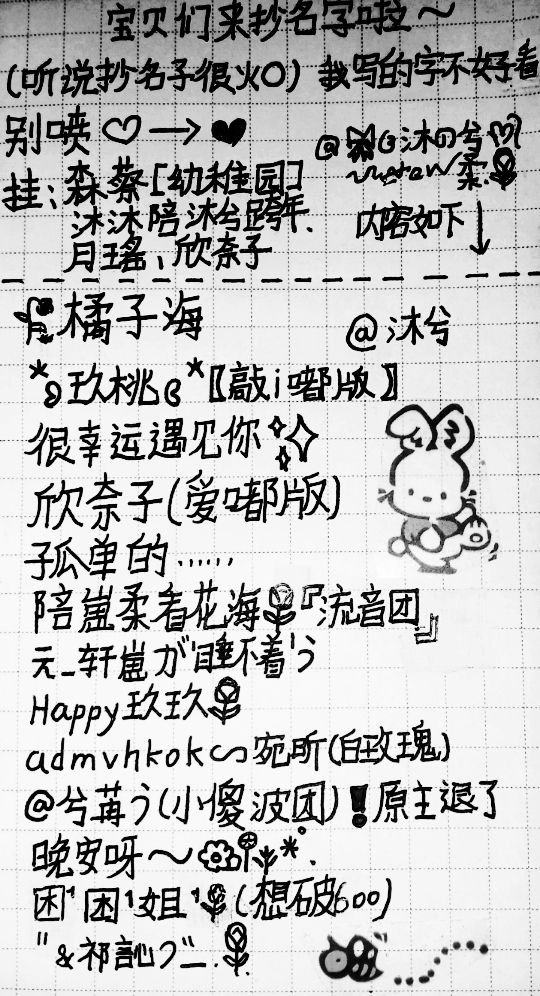 宝贝们来抄名字啦～
(听说抄名子很火O) 我写的字不好看
别喷♡→♥
@ 沐兮
柔
挂:森蔡[幼稚园]
沐沐陪沐兮跨年.
月瑶、欣奈子
内容如下↓
橘子海
@沐兮
*ʚ玖桃ɞ*〖敲i嘟版〗
很幸运遇见你
欣奈子(爱嘟版)
孤单的……
陪嵐柔看花海『流音团』
元_轩嵐が'睡不着'う
Happy玖玖
admvhkokという宛昕(白玫瑰)
@兮苒う(小傻波团)！原主退了
晚安呀～*.
困'困'姐'(想破600)
"&祁訫つ"_.